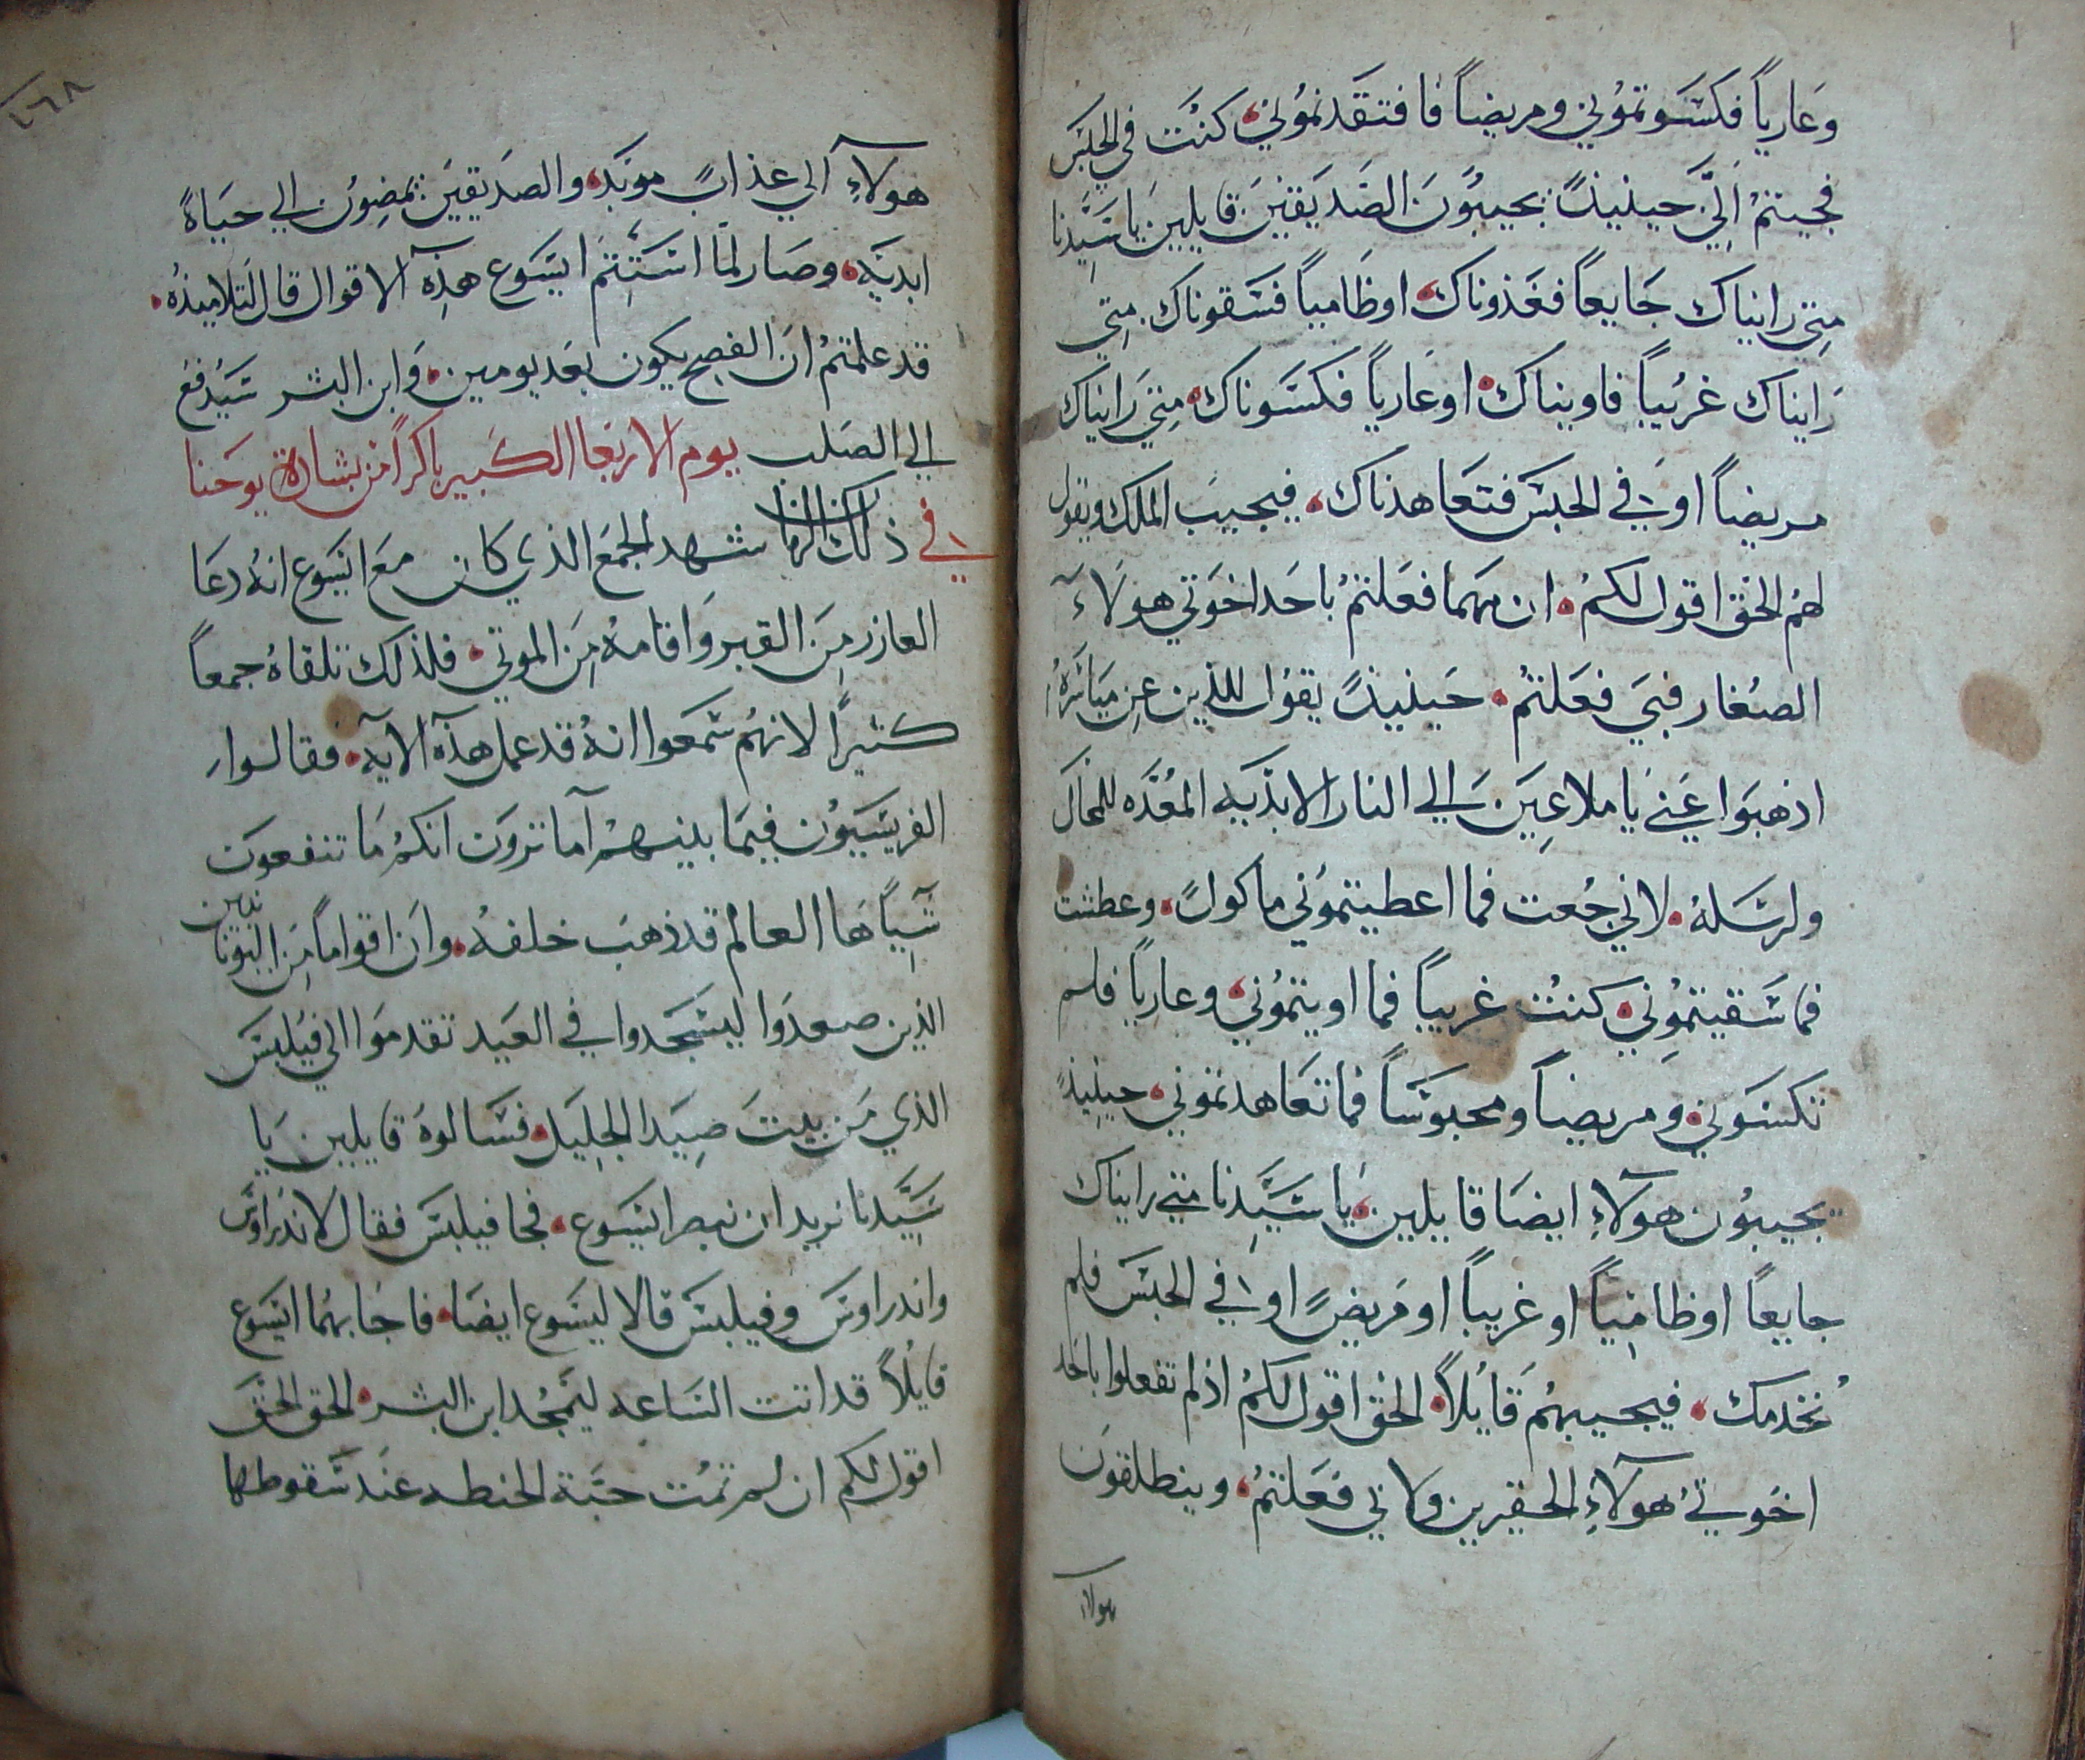 وعارياً فكسوتموني ومريضاً فافتقدتموني كنت في الحبس
فجيتم اليَّ حينيذٍ يجيبون الصديقين قايلين يا سيدنا
متى رايناك جايعاً فغذوناك اوظامياً فسقوناك متي
رايناك غريباً فاويناك اوعارياً فكسوناك متي رايناك
مريضاً او في الحبس فتعاهدناك فيجيب الملك ويقول
لهم الحق اقول لكم ان مهما فعلتم باحد اخوتي هولاء
الصغار فبي فعلتم حينيذٍ يقول للذين عن مياسره
اذهبوا عني يا ملاعين الي النار الابديه المعده للمحال
ولرسله لاني جعت فما اعطيتموني ماكولً وعطشت
فما سقيتموني كنت غريباً فما اويتموني وعارياً فلم
تكسوني ومريضاً ومحبوساً فما تعاهدتموني حينيذٍ
يجيبون هولاء ايضا قايلين يا سيدنا متي رايناك
جايعاً اوظامياً او غريباً او مريضٍ او في الحبس فلم
نخدمك فيجيبهم قايلاً الحق اقول لكم اذ لم تفعلوا باحد
اخوتي هولاء الحقيرين ولا بي فعلتم وينطلقون
هولاء
١٦٨
هولاء الي عذابً موبد والصديقين يمضون الي حياةً
ابديه وصار لما استتم ايسوع هذه الاقوال قال لتلاميذه
قد علمتم ان الفصح يكون بعد يومين وابن البشر سيدفع
الي الصلب يوم الاربعا الكبير باكراً من بشارة يوحنا
في ذلك الزمان شهد الجمع الذي كان مع ايسوع انه دعا
العازر من القبر واقامه من الموتي فلذلك تلقاه جمعاً
كثيراً لانهم سمعوا انه قد عمل هذه الايه فقالوا
الفريسيون فيما بينهم اما ترون انكم ما تنفعون
شياً ها العالم قد ذهب خلفه وان اقواماً من اليونانيين
الذين صعدوا ليسجدوا في العيد تقدموا الي فيلبس
الذي من بيت صيدا الجليل فسالوه قايلين يا
سيدنا نريد ان نبصر ايسوع فجا فيلبس فقال لاندراوس
واندراوس وفيلبس قالا ليسوع ايضا فاجابهما ايسوع
قايلاً قد اتت الساعه ليتمجد ابن البشر الحق الحق
اقول لكم ان لم تمت حبة الحنطه عند سقوطها